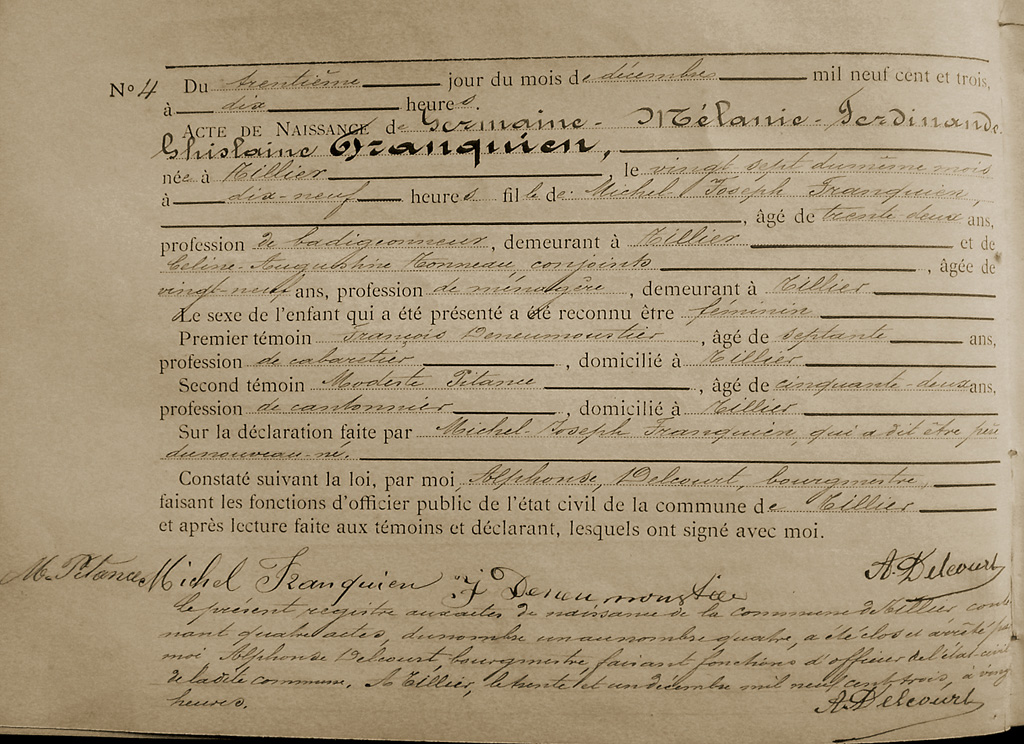 No 4 Du trentième jour du mois de décembre mil neuf cent et trois,
à dix heures.
ACTE DE NAISSANCE de Germaine - Mélanie - Ferdinande
Ghislaine Franquien,
née à Tillier, le vingt sept du même mois
à dix-neuf heures fille de Michel Joseph Franquien,
, âgé de trente deux ans,
profession de badigeonneur, demeurant à Tillier et de
Céline-Augustine Tonneau conjoints, âgée de
vingt-neuf ans, profession de ménagère, demeurant à Tillier
Le sexe de l'enfant qui a été présenté a été reconnu être féminin
Premier témoin François Deneumoustier, âgé de septante ans,
profession de cabaretier, domicilié à Tillier
Second témoin Modeste Pitance, âgé de cinquante-deux ans,
profession de cantonnier, domicilié à Tillier
Sur la déclaration faite par Michel-Joseph Franquien, qui a dit être père
du nouveau-né.
Constaté suivant la loi, par moi Alphonse, Delcourt, bourgmestre,
faisant les fonctions d'officier public de l'état civil de la commune de Tillier
et après lecture faite aux témoins et déclarant, lesquels ont signé avec moi.
M. Pitance Michel Franquien F Deneumoustier A. Delcourt
Le présent registre aux actes de naissance de la commune de Tillier conte-
nant quatre actes, du nombre un au nombre quatre, a été clos et arrêté par
moi Alphonse Delcourt bourgmestre faisant fonctions d'officier de l'état civil
de la dite commune. A Tillier, le trente et un décembre mil neuf cent trois, à vingt
heures. A. Delcourt